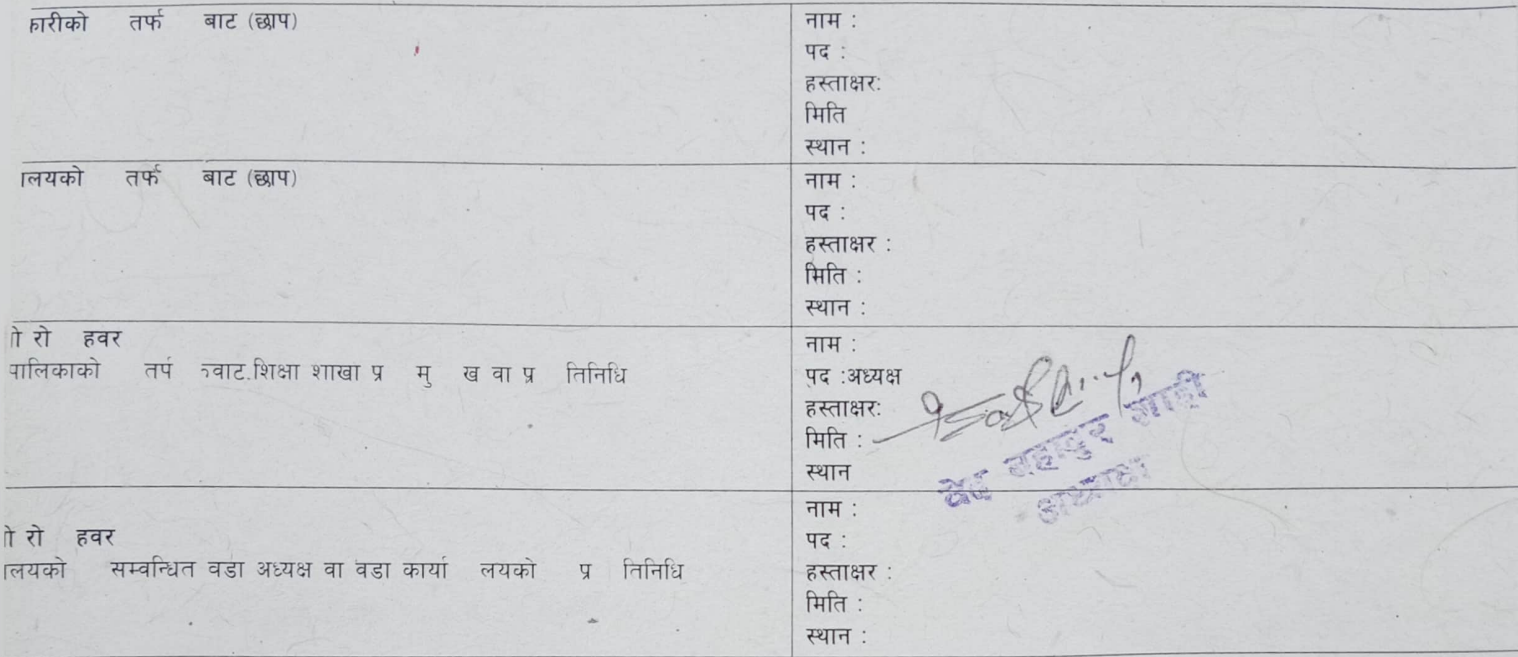 कारीको तर्फ बाट (छाप)
नाम :
पद :
हस्ताक्षर:
मिति
स्थान :
ालयको तर्फ बाट (छाप)
नाम :
पद :
हस्ताक्षर :
मिति :
स्थान :
ो रो हवर
पालिकाको तर्प वाट.शिक्षा शाखा प्र मु ख वा प्र तिनिधि
नाम :
पद :अध्यक्ष
हस्ताक्षर:
मिति :
स्थान
वेद बहादुर शाही
अध्यक्ष
ो रो हवर
ालयको सम्वन्धित वडा अध्यक्ष वा वडा कार्या लयको प्र तिनिधि
नाम :
पद :
हस्ताक्षर :
मिति :
स्थान :